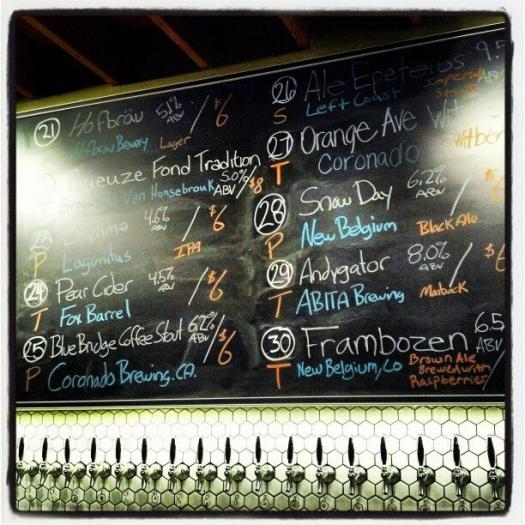 21 Hofbräu 5.1% ABV / $6
Hofbrau Brewery Lager
Gueuze Fond Tradition
Van Honsebrouk 5.0% ABV / $8
4.6% ABV / $6
P Lagunitas IPA
24 Pear Cider 4.5% ABV / $6
T Fox Barrel
25 Blue Bridge Coffee Stout 6.2% ABV / $6
P Coronado Brewing, CA.
26 Ale Epeteios 9.5 ABV
S Left Coast Imperial Stout
27 Orange Ave Wit
T Coronado Witbier
28 Snow Day 6.2% ABV /
P New Belgium Black Ale
29 Andygator 8.0% ABV / $6
T ABITA Brewing Maibock
30 Frambozen 6.5 ABV
T New Belgium, CO Brown Ale
Brewed with
Raspberries